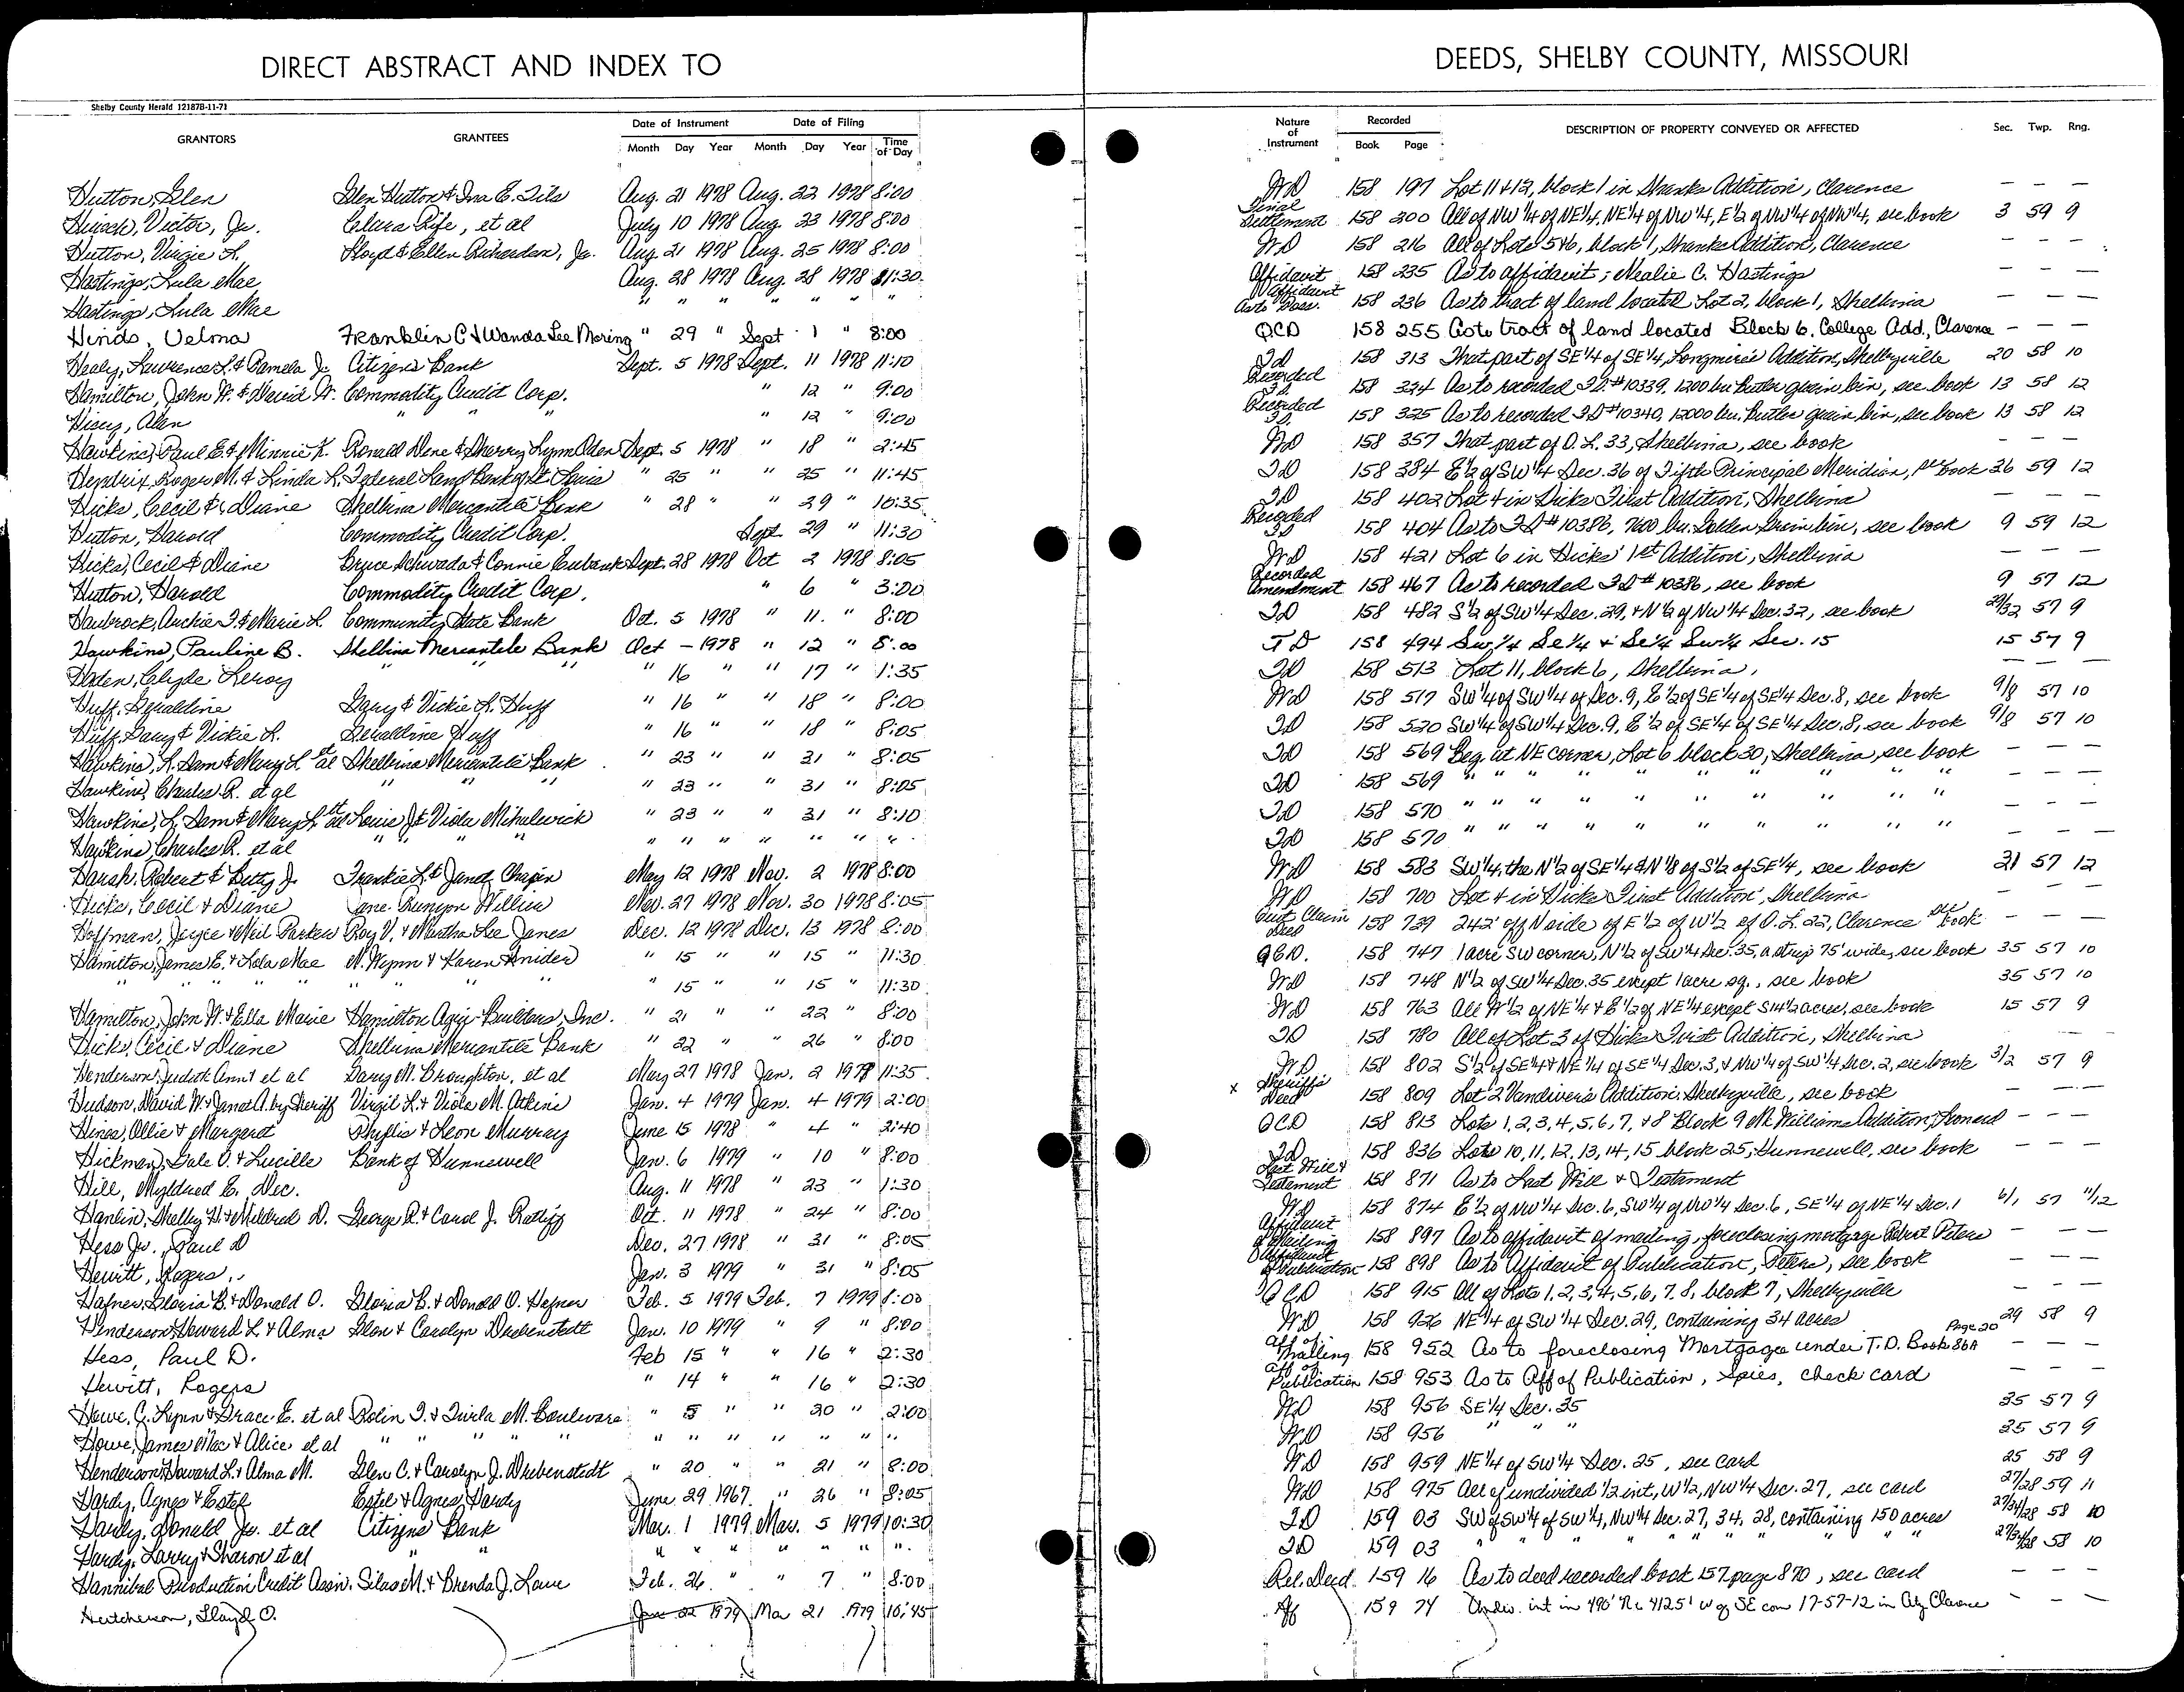 DIRECT ABSTRACT AND INDEX TO
DEEDS, SHELBY COUNTY, MISSOURI
Shelby County Herald 12187B-11-71
GRANTORS GRANTEES Date of Instrument Date of Filing
Month Day Year Month Day Year Time of Day
Nature of Instrument Recorded DESCRIPTION OF PROPERTY CONVEYED OR AFFECTED Sec. Twp. Rng.
Book Page
Hutton, Glen Glen Hutton & Ina E. Aug. 21 1978 Aug. 22 1978 8:00 WD 158 197 Lot 11 & 12, block 1 in Shanks Addition, Clarence — — —
Hirsch, Victor, Jr. Clara Rife, et al July 10 1978 Aug. 23 1978 8:00 Final Settlement 158 200 All of NW 1/4 of NE 1/4, NE 1/4 of NW 1/4, E 1/2 of NW 1/4 of NW 1/4, see book 3 59 9
Hutton, Virgie L. Floyd & Ellen Richardson, Jr. Aug. 21 1978 Aug. 25 1978 8:00 WD 158 216 All of Lots 5 & 6, block 1, Shanks Addition, Clarence — — —
Hastings, Lula Mae Aug. 28 1978 Aug. 28 1978 11:30 Affidavit 158 235 As to affidavit; Nealie C. Hastings — — —
Hastings, Lula Mae " " " " " " " Affidavit As to Poss. 158 236 As to tract of land located Lot 2, block 1, Shelbina — — —
Hinds, Velma Franklin C & Wanda Lee Moring " 29 " Sept 1 " 8:00 QCD 158 255 As to tract of land located Block 6, College Add., Clarence — — —
Healy, Lawrence L. & Pamela J. Citizens Bank Sept. 5 1978 Sept. 11 1978 11:10 TD 158 313 That part of SE 1/4 of SE 1/4, Longmire's Addition, Shelbyville 20 58 10
Hamilton, John W. & David W. Commodity Credit Corp. " 12 " 9:00 Recorded TD 158 324 As to recorded TD #10339, 1200 bu. Butler grain bin, see book 13 58 12
Alan " " " 12 " 9:00 Recorded TD 158 325 As to recorded TD #10340, 12000 bu. Butler grain bin, see book 13 58 12
Hawkins, Paul E. & Minnie K. Ronald Dene & Sherry Lynn Olden Sept. 5 1978 " 18 " 2:45 WD 158 357 That part of O.L. 33, Shelbina, see book — — —
Hendrix, Roger M. & Linda L. Federal Land Bank of St. Louis " 25 " " 25 " 11:45 TD 158 384 E 1/2 of SW 1/4 Sec. 36 of Fifth Principal Meridian, see book 36 59 12
Hicks, Cecil & Diane Shelbina Mercantile Bank " 28 " " 29 " 10:35 TD 158 402 Lot 4 in Hicks First Addition, Shelbina — — —
Hutton, Harold Commodity Credit Corp. Sept. 29 " 11:30 Recorded TD 158 404 As to TD #10386, 7600 bu. Golden Grain bin, see book 9 59 12
Hicks, Cecil & Diane Bryce Schwada & Connie Eubank Sept. 28 1978 Oct 2 1978 8:05 WD 158 421 Lot 6 in Hicks' 1st Addition, Shelbina — — —
Hutton, Harold Commodity Credit Corp. " 6 " 3:00 Recorded Amendment 158 467 As to recorded TD #10386, see book 9 57 12
Haubrock, Archie F. & Marie L. Community State Bank Oct. 5 1978 " 11 " 8:00 TD 158 482 S 1/2 of SW 1/4 Sec. 29, & N 1/2 of NW 1/4 Sec. 32, see book 29/32 57 9
Hawkins, Pauline B. Shelbina Mercantile Bank Oct — 1978 " 12 " 8:00 TD 158 494 SW 1/4 SE 1/4 & SE 1/4 SW 1/4 Sec. 15 15 57 9
Haden, Clyde Leroy " " " " 16 " " 17 " 1:35 TD 158 513 Lot 11, block 6, Shelbina, — — —
Huff, Geraldine Gary & Vickie L. Huff " 16 " " 18 " 8:00 WD 158 517 SW 1/4 of SW 1/4 of Sec. 9, E 1/2 of SE 1/4 of SE 1/4 Sec. 8, see book 9/8 57 10
Huff, Gary & Vickie L. Geraldine Huff " 16 " " 18 " 8:05 TD 158 520 SW 1/4 of SW 1/4 Sec. 9, E 1/2 of SE 1/4 of SE 1/4 Sec. 8, see book 9/8 57 10
Hawkins, L. Sam & Mary L. et al Shelbina Mercantile Bank " 23 " " 31 " 8:05 TD 158 569 Beg. at NE corner, Lot 6 block 30, Shelbina, see book — — —
Hawkins, Charles R. et al " " " " 23 " " 31 " 8:05 TD 158 569 " " " " " " " " " — — —
Hawkins, L. Sam & Mary L. et al Louis J. & Viola Mihalevich " 23 " " 31 " 8:10 TD 158 570 " " " " " " " " " — — —
Hawkins, Charles R. et al " " " " " " " " " " TD 158 570 " " " " " " " " " — — —
Harsh, Robert & Betty J. Frankie L. & Janet Chapin May 12 1978 Nov. 2 1978 8:00 WD 158 583 SW 1/4, the N 1/2 of SE 1/4 & N 1/8 of S 1/2 of SE 1/4, see book 21 57 12
Hicks, Cecil & Diane Jane Runyon Willis Nov. 27 1978 Nov. 30 1978 8:05 WD 158 700 Lot 4 in Hicks First Addition, Shelbina — — —
Hoffman, Joyce & Neil Parker Roy V. & Martha Lee Janes Dec. 12 1978 Dec. 13 1978 8:00 Quit Claim Deed 158 739 242' off N side of E 1/2 of W 1/2 of O.L. 22, Clarence see book — — —
Hamilton, James E. & Lola Mae M. Wynn & Karen Snider " 15 " " 15 " 11:30 QCD. 158 747 1 acre SW corner, N 1/2 of SW 1/4 Sec. 35, a strip 75' wide, see book 35 57 10
" " " " " " " " " " 15 " " 15 " 11:30 WD 158 748 N 1/2 of SW 1/4 Sec. 35 except 1 acre sq., see book 35 57 10
Hamilton, John W. & Ella Marie Hamilton Agri-Builders, Inc. " 21 " " 22 " 8:00 WD 158 763 All W 1/2 of NE 1/4 & E 1/2 of NE 1/4 except S 14 1/2 acres, see book 15 57 9
Hicks, Cecil & Diane Shelbina Mercantile Bank " 22 " " 26 " 8:00 TD 158 780 All of Lot 3 of Hicks First Addition, Shelbina — — —
Henderson, Judith Ann & et al Gary M. Broughton, et al May 27 1978 Jan. 2 1979 11:35 WD 158 802 S 1/2 of SE 1/4 & NE 1/4 of SE 1/4 Sec. 3, & NW 1/4 of SW 1/4 Sec. 2, see book 3/2 57 9
Hudson, David W. & Janet A. by Sheriff Virgil L. & Viola M. Atkins Jan. 4 1979 Jan. 4 1979 2:00 x Sheriff's Deed 158 809 Lot 2 Vandiver's Addition, Shelbyville, see book — — —
Hines, Ollie & Margaret Phyllis & Leon Murray June 15 1978 " 4 " 2:40 QCD 158 813 Lots 1, 2, 3, 4, 5, 6, 7, & 8 Block 9 McWilliams Addition, Leonard — — —
Hickman, Gale O. & Lucille Bank of Hunnewell Jan. 6 1979 " 10 " 8:00 TD 158 836 Lots 10, 11, 12, 13, 14, 15 block 25, Hunnewell, see book — — —
Hill, Myldred E. Dec. Aug. 11 1978 " 23 " 1:30 Last Will & Testament 158 871 As to Last Will & Testament
Hanlin, Shelby H. & Mildred D. George R. & Carol J. Ratliff Oct. 11 1978 " 24 " 8:00 WD 158 874 E 1/2 of NW 1/4 Sec. 6, SW 1/4 of NW 1/4 Sec. 6, SE 1/4 of NE 1/4 Sec. 1 6/1 57 11/12
Hess Jr., Paul D Dec. 27 1978 " 31 " 8:05 Affidavit of Mailing 158 897 As to affidavit of mailing, foreclosing mortgage Robert Peters — — —
Hewitt, Rogers, Jan. 3 1979 " 31 " 8:05 Affidavit of Publication 158 898 As to Affidavit of Publication, Peters, see book — — —
Hafner, Gloria B. & Donald O. Gloria B. & Donald O. Hafner Feb. 5 1979 Feb. 7 1979 8:00 QCD 158 915 All of Lots 1, 2, 3, 4, 5, 6, 7, 8, block 7, Shelbyville — — —
Henderson, Howard L. & Alma Glen & Carolyn Drebenstedt Jan. 10 1979 " 9 " 8:00 WD 158 926 NE 1/4 of SW 1/4 Sec. 29, containing 34 acres 29 58 9
Hess, Paul D. Feb 15 " " 16 " 2:30 Aff of Mailing 158 952 As to foreclosing Mortgage under T.D. Book 86A Page 20 — — —
Hewitt, Rogers " 14 " " 16 " 2:30 Aff of Publication 158 953 As to Aff of Publication, Spies, check card — — —
Howe, C. Lynn & Grace E. et al Rolin F. & Twila M. Boulware " 5 " " 20 " 2:00 WD 158 956 SE 1/4 Sec. 35 35 57 9
Howe, James Mac & Alice et al " " " " " " " " " " " " WD 158 956 " " " 35 57 9
Henderson, Howard L. & Alma M. Glen C. & Carolyn J. Drebenstedt " 20 " " 21 " 8:00 WD 158 959 NE 1/4 of SW 1/4 Sec. 25, see card 25 58 9
Hardy, Agnes & Estel Estel & Agnes Hardy June 29 1967 " 26 " 8:05 WD 158 975 All of undivided 1/2 int, W 1/2, NW 1/4 Sec. 27, see card 27/28 59 11
Hardy, Donald Jr. et al Citizens Bank Mar. 1 1979 Mar. 5 1979 10:30 TD 159 03 SW of SW 1/4 of SW 1/4, NW 1/4 Sec. 27, 34, 28, containing 150 acres 27/34/28 58 10
Hardy, Larry & Sharon et al " " " " " " " " " TD 159 03 " " " " " " " " 27/34/28 58 10
Hannibal Production Credit Assn. Silas M. & Brenda J. Lowe Feb. 26 " " 7 " 8:00 Rel. Deed 159 16 As to deed recorded book 157 page 870, see card — — —
Hutcherson, Lloyd O. 1979 Mar 21 1979 10:45 Aff 159 74 Undiv. int in 490' N & 4125' W of SE cor 17-57-12 in City Clarence — — —